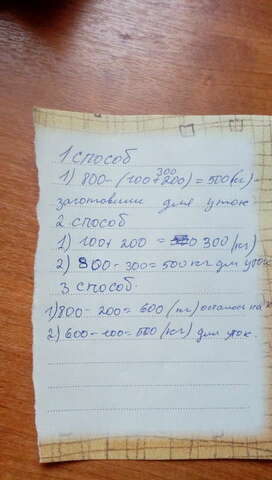 1 способ
300
1) 800-(100+200) = 500(кг)-
заготовили для уток
2 способ
1) 100+ 200 = 300 (кг)
2) 800- 300=500 кг для уток
3 способ.
1) 800- 200= 600 (кг) осталось на
2) 600-100=500 (кг) для уток.